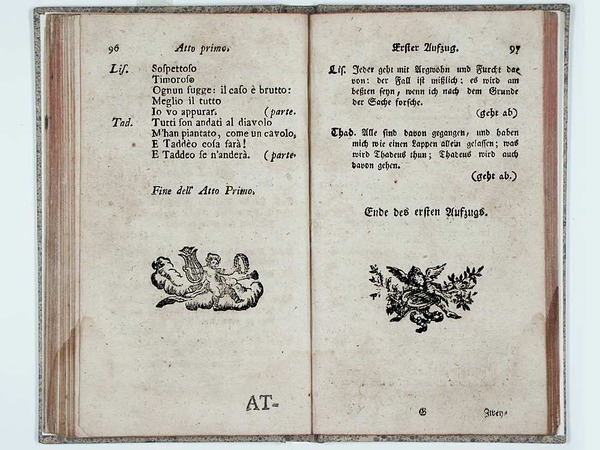 96 Atto primo.
Lis. Sospettoso
Timoroso
Ognun fugge: il caso è brutto:
Meglio il tutto
Io vo appurar. (parte.
Tad. Tutti son andati al diavolo
M'han piantato, come un cavolo,
E Taddèo cosa farà!
E Taddeo se n'anderà. (parte.
Fine dell' Atto Primo.
AT-
Erster Aufzug. 97
Lis. Jeder geht mit Argwohn und Furcht da-
von: der Fall ist mißlich: es wird am
besten seyn, wenn ich nach dem Grunde
der Sache forsche.
(geht ab)
Thad. Alle sind davon gegangen, und haben
mich wie einen Lappen allein gelassen; was
wird Thadeus thun; Thadeus wird auch
davon gehen.
(geht ab.)
Ende des ersten Aufzugs.
G Zwey-